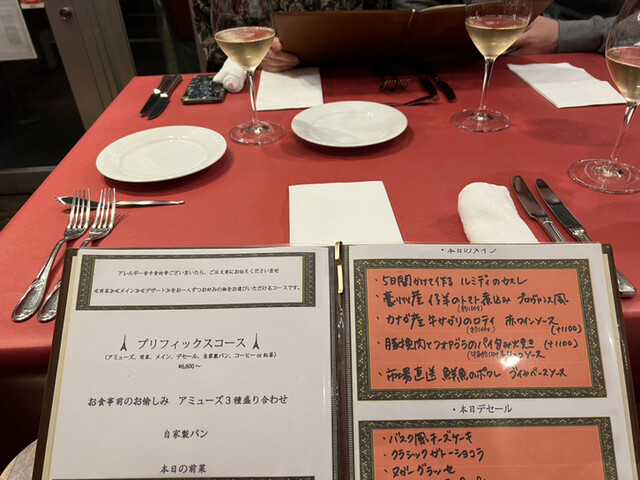 アレルギー等不食材等ございまいたら、ご注文前にお伝えくださいませ
≪前菜≫≪メイン≫≪デザート≫をお一人ずつお好みの物をお選びいただけるコースです。
プリフィックスコース
(アミューズ、前菜、メイン、デセール、自家製パン、コーヒー or 紅茶)
¥6,600～
お食事前のお愉しみ アミューズ３種盛り合わせ
自家製パン
本日の前菜
・本日のメイン
・5日間かけて作る ルミディのカスレ
産 仔羊のトマト煮込み プロヴァンス風
・カナダ産 牛サガリのロティ 赤ワインソース
(+1100)
・豚挽肉とフォアグラのパイ包み火焼き (+1100)
ソース
・市場直送 鮮魚のポワレ ブイヤベースソース
・本日デセール
・バスク風チーズケーキ
・クラシックガトーショコラ
・ヌガーグラッセ